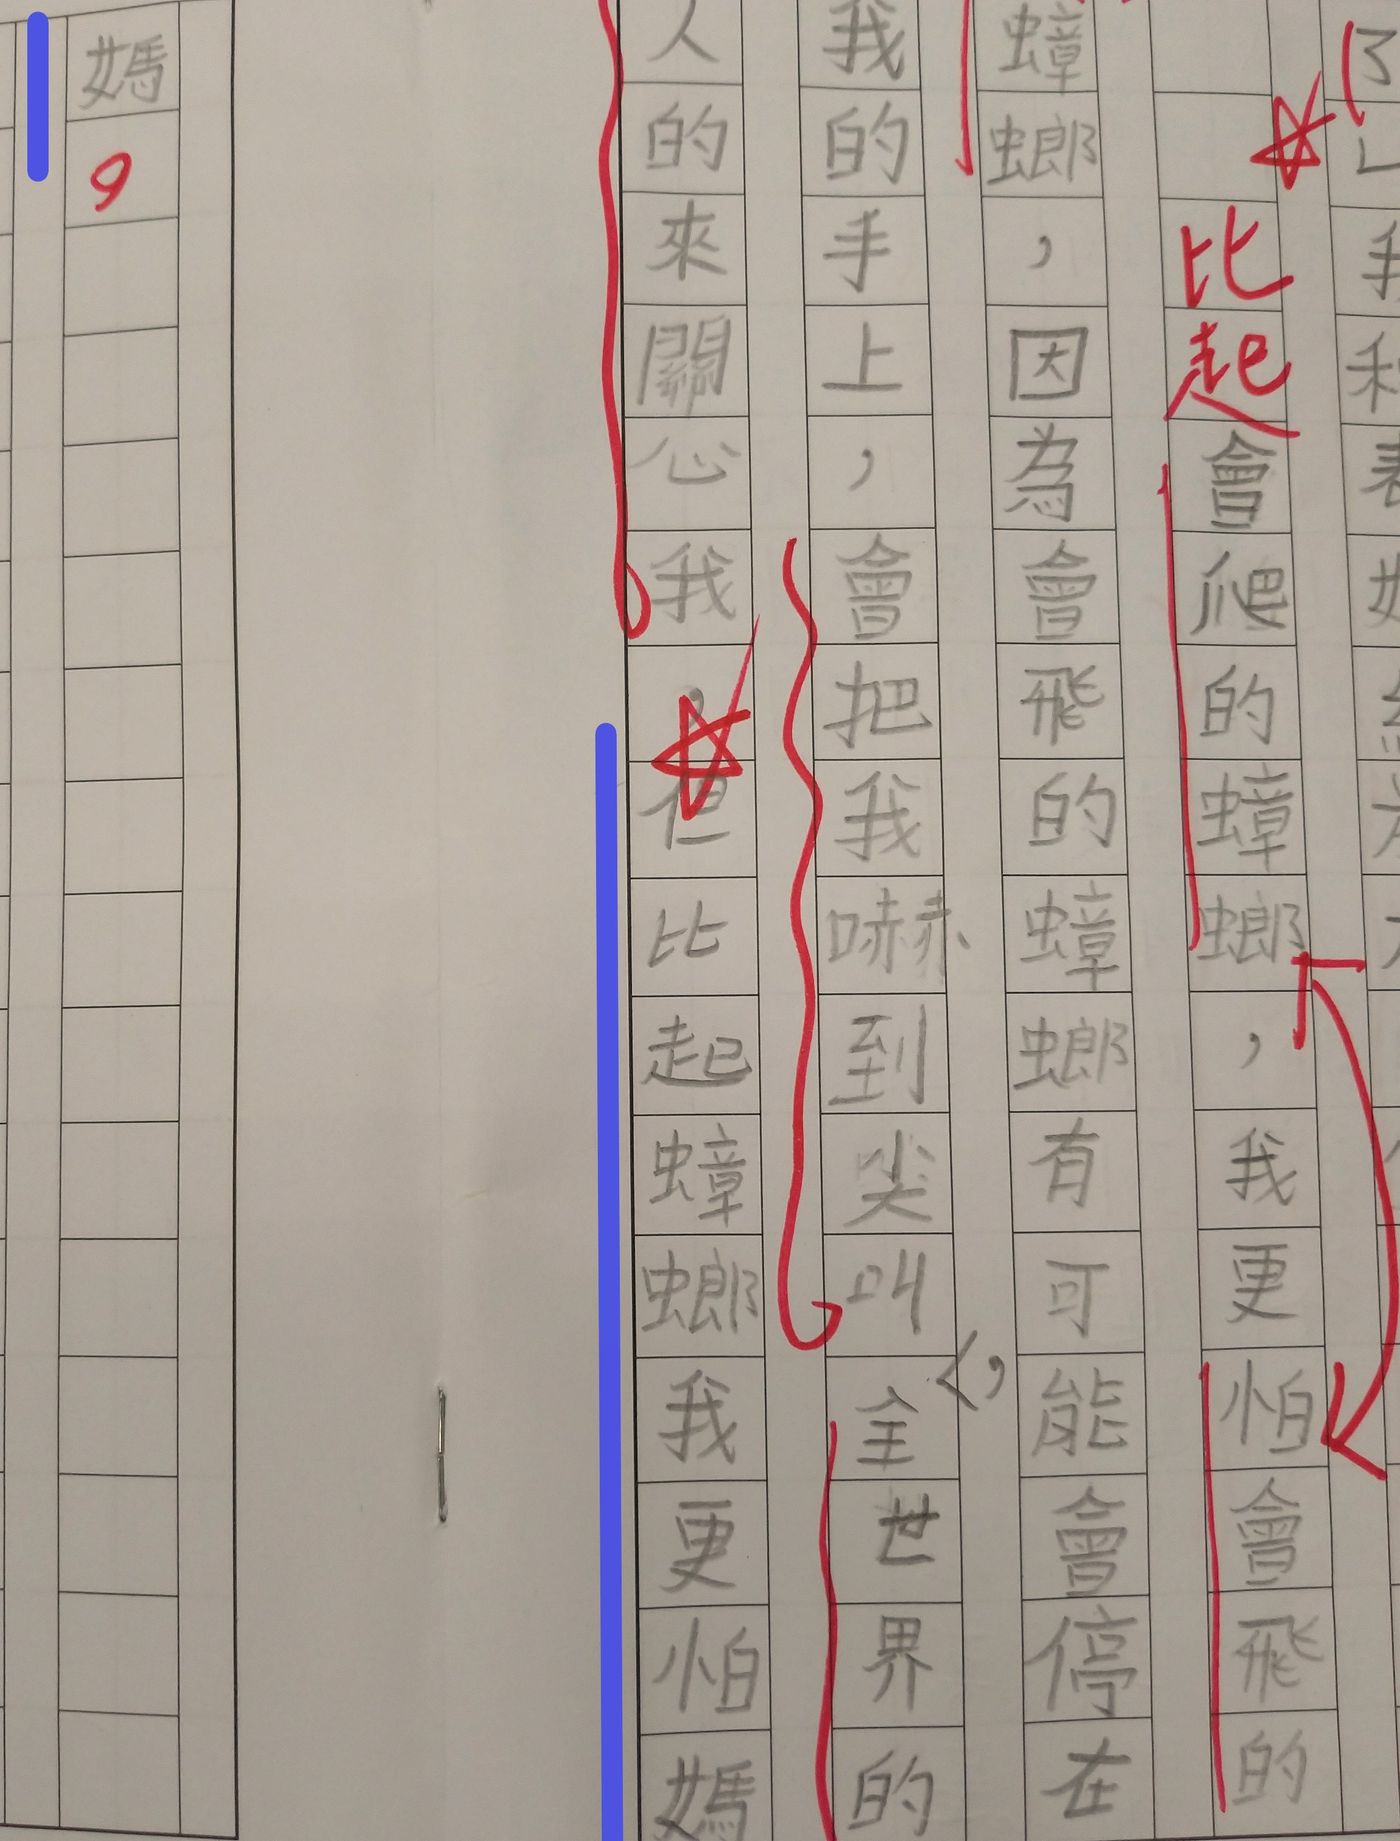 比起會爬的蟑螂，我更怕會飛的
蟑螂，因為會飛的蟑螂有可能會停在
我的手上，會把我嚇到尖叫，全世界的
人的來關心我，但比起蟑螂我更怕媽
媽。